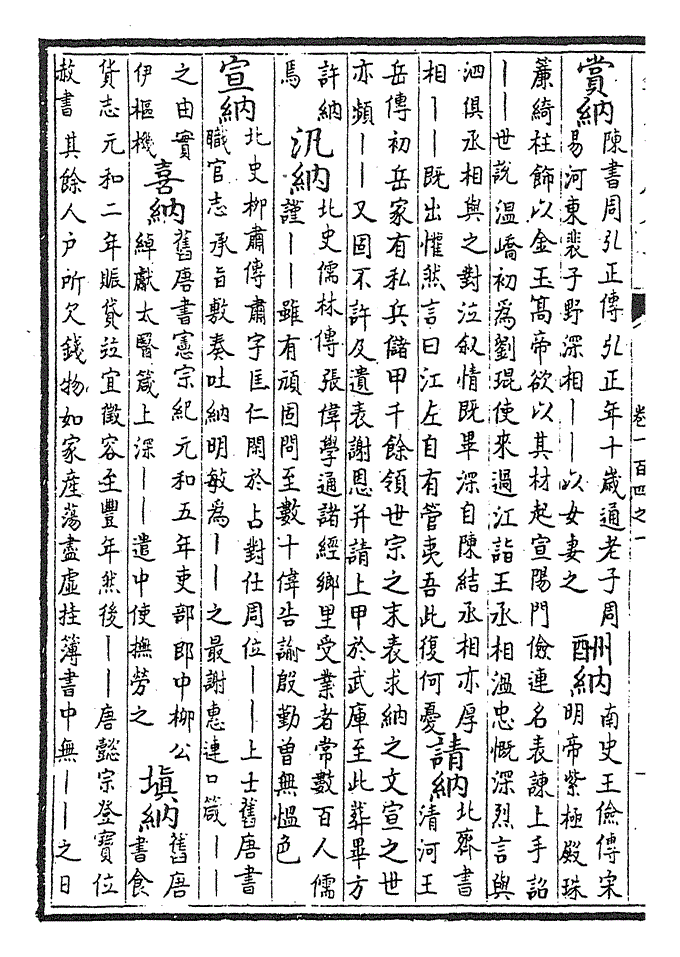 卷一百四之一
一
賞納
陳書周弘正傳弘正年十歲通老子周
易河東裴子野深相——以女妻之
酬納
南史王儉傳宋
明帝紫極殿珠
簾綺柱飾以金玉髙帝欲以其材起宣陽門儉連名表諫上手詔
——世說溫嶠初爲劉琨使來過江詣王丞相溫忠慨深烈言與
泗俱丞相與之對泣叙情既畢深自陳結丞相亦厚
相——既出懽然言曰江左自有管夷吾此復何憂
請納
北齊書
清河王
岳傳初岳家有私兵儲甲千餘領世宗之末表求納之文宣之世
亦頻——又固不許及遺表謝恩并請上甲於武庫至此葬畢方
許納
焉
汎納
北史儒林傳張偉學通諸經鄉里受業者常數百人儒
謹——雖有頑固問至數十偉告諭殷勤曾無慍色
宣納
北史柳肅傳肅字匡仁閑於占對仕周位——上士舊唐書
職官志承旨敷奏吐納明敏為——之最謝惠連口箴——
之由實
伊樞機
喜納
舊唐書憲宗紀元和五年吏部郎中柳公
綽獻太醫箴上深——遣中使撫勞之
塡納
舊唐
書食
貨志元和二年賑貸竝宜徵容至豐年然後——唐懿宗登寶位
赦書其餘人戶所欠錢物如家産蕩盡虛挂簿書中無——之日